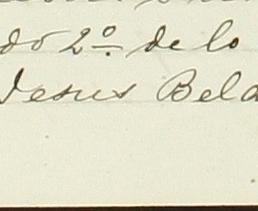 do 2º de lo
Jesus Bela